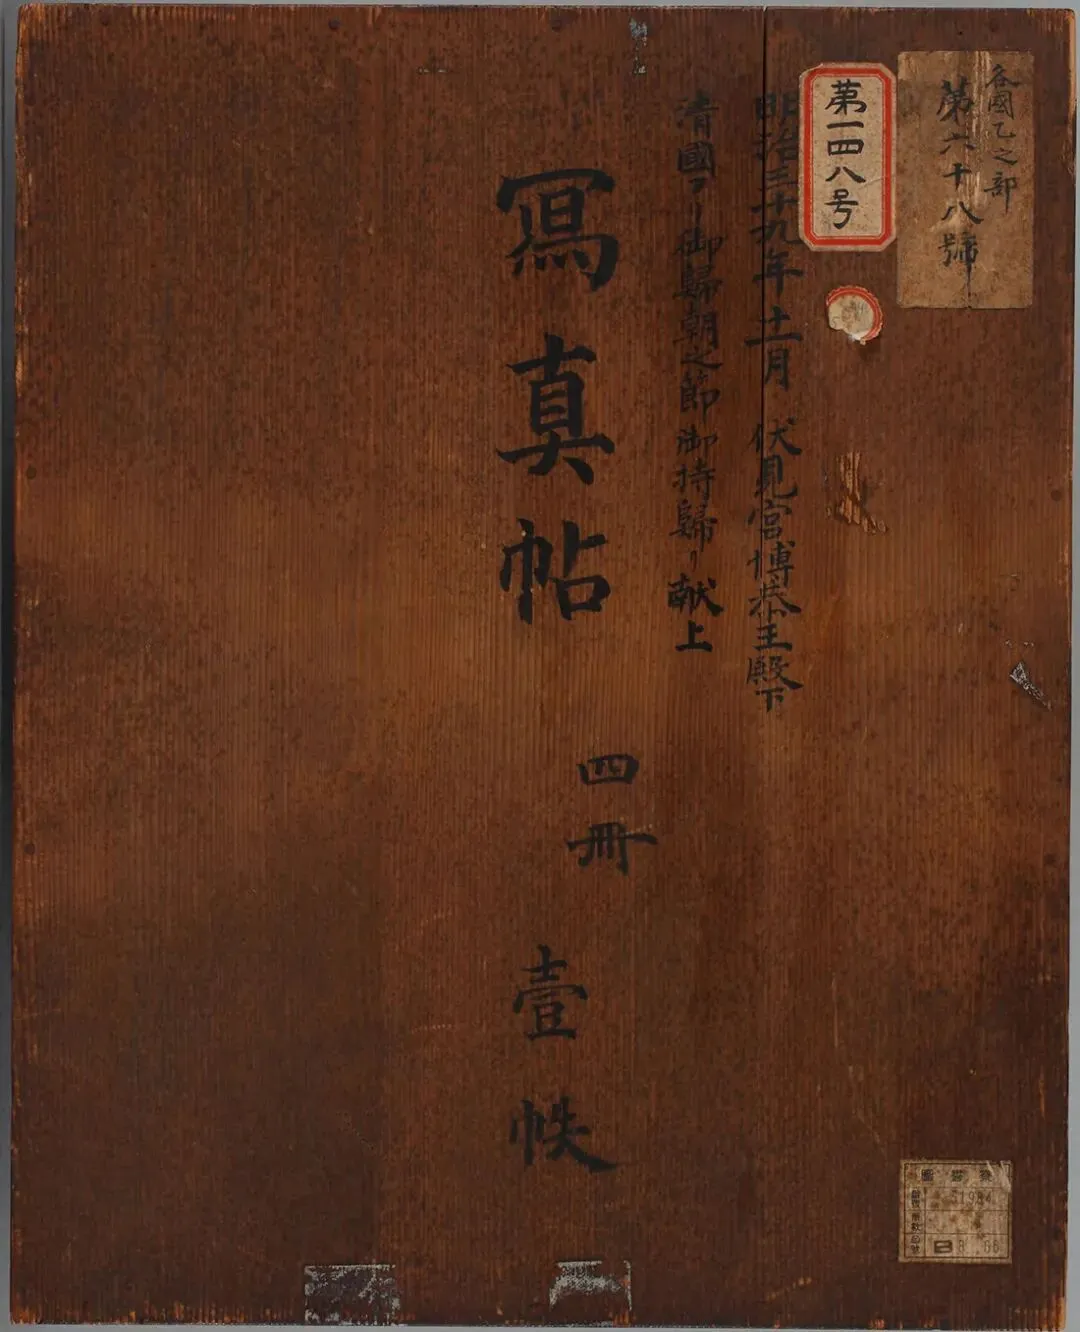 各國乙之部
第六十八號
第一四八号
明治三十九年十一月 伏見宮博恭王殿下
清國ヨリ御歸朝之節御持歸リ献上
寫真帖
四冊
壹帙
圖書寮
51984
8 66